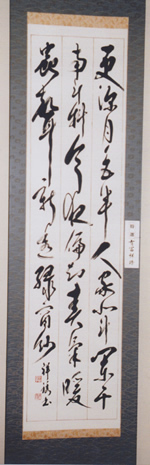 更深月色半人家北斗闌干
南斗斜今夜偏知春氣暖
蟲聲新透綠窗紗 書